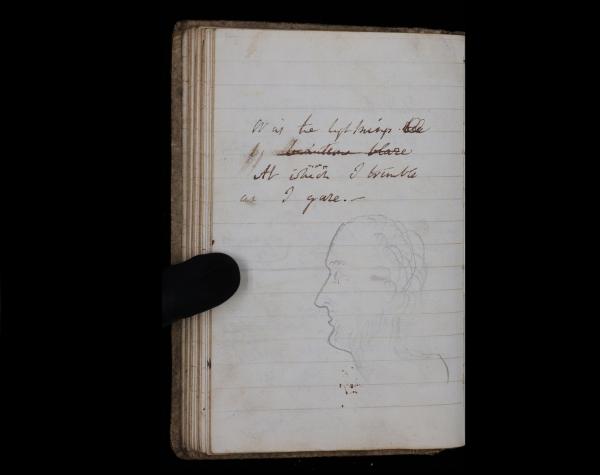 Or is the lightnings
blaze
At which I tremble
as I gaze.—